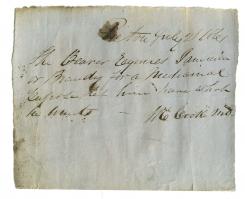 July 21 1861
The Bearer Requires Jamaica
or Brandy for a Mechanical
Purpose Let him have what
he wants —
W C Cooke M.D.